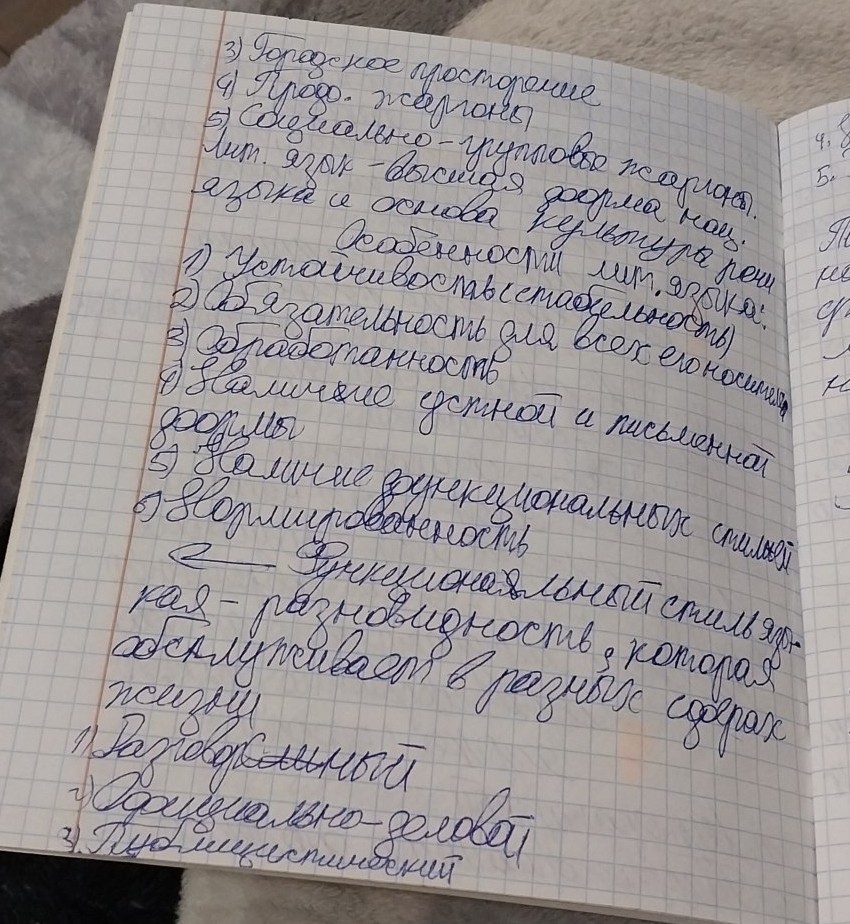 3) Городское просторечие
4) Профо. жаргоны
5) Социально-групповые жаргоны.
Лит. язык - высшая форма нац.
языка и основа культуры речи
Особенности лит. языка:
1) Устойчивость (стабильность)
2) Обязательность для всех его носителей
3) Обработанность
4) Наличие устной и письменной
формы
5) Наличие функциональных стилей
6) Нормированность
← Функциональный стиль язы-
кая - разновидность, которая
обслуживает в разных сферах
жизни
1) Разговорный
2) Официально-деловой
3) Публицистический
4.
5.